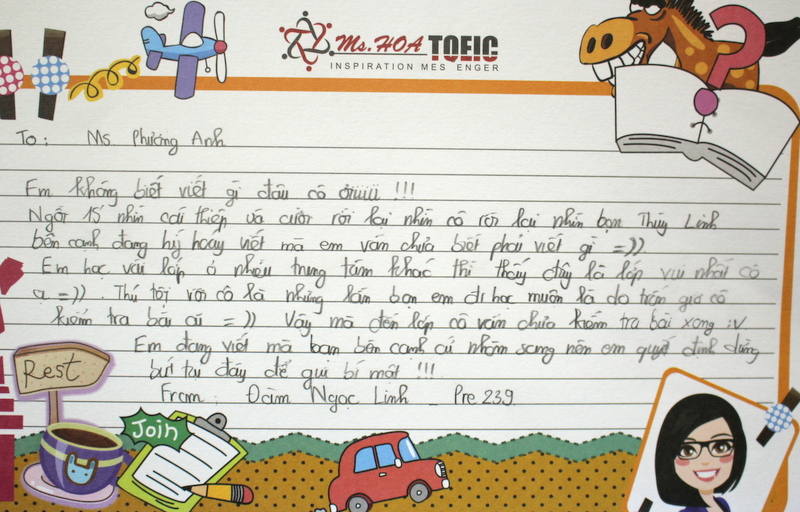 Ms. HOA TOEIC
INSPIRATION MES ENGER
To: Ms. Phương Anh
Em không biết viết gì đâu cô ơiiiiii !!!
Ngồi 15' nhìn cái thiệp và cười rồi lại nhìn cô rồi lại nhìn bạn Thùy Linh
bên cạnh đang hý hoáy viết mà em vẫn chưa biết phải viết gì =)).
Em học vài lớp ở nhiều trung tâm khác thì thấy đây là lớp vui nhất cô
ạ =)). Thú tội với cô là những lần bạn em đi học muộn là do trốn giờ cô
kiểm tra bài cũ =)) Vậy mà đến lớp cô vẫn chưa kiểm tra bài xong :v
Em đang viết mà bạn bên cạnh cứ nhòm sang nên em quyết định dừng
bút tại đây để giữ bí mật !!!
From: Đàm Ngọc Linh _ Pre 239
Rest
Join